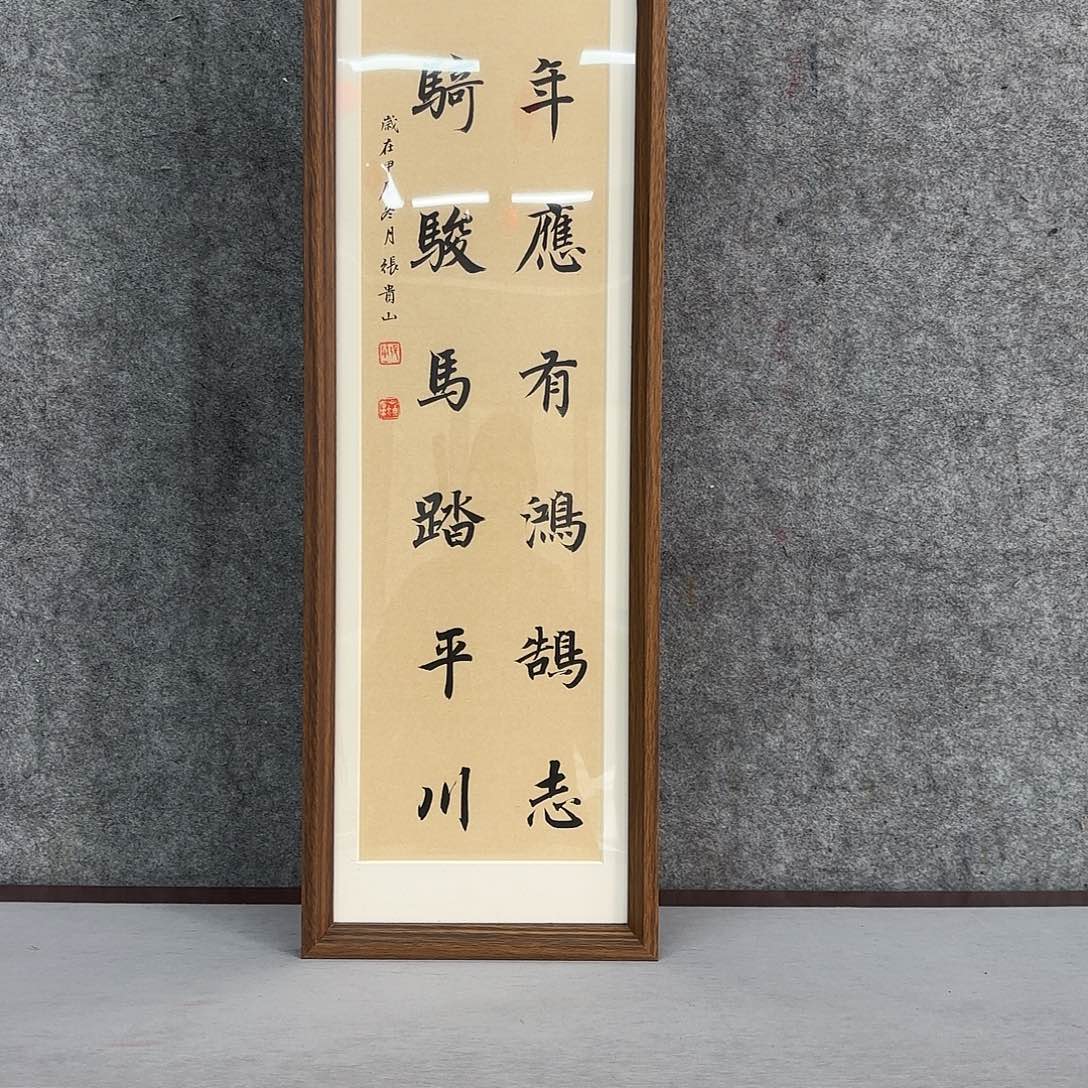 年應有鴻鵠志
騎駿馬踏平川
歲在甲 冬月張貴山